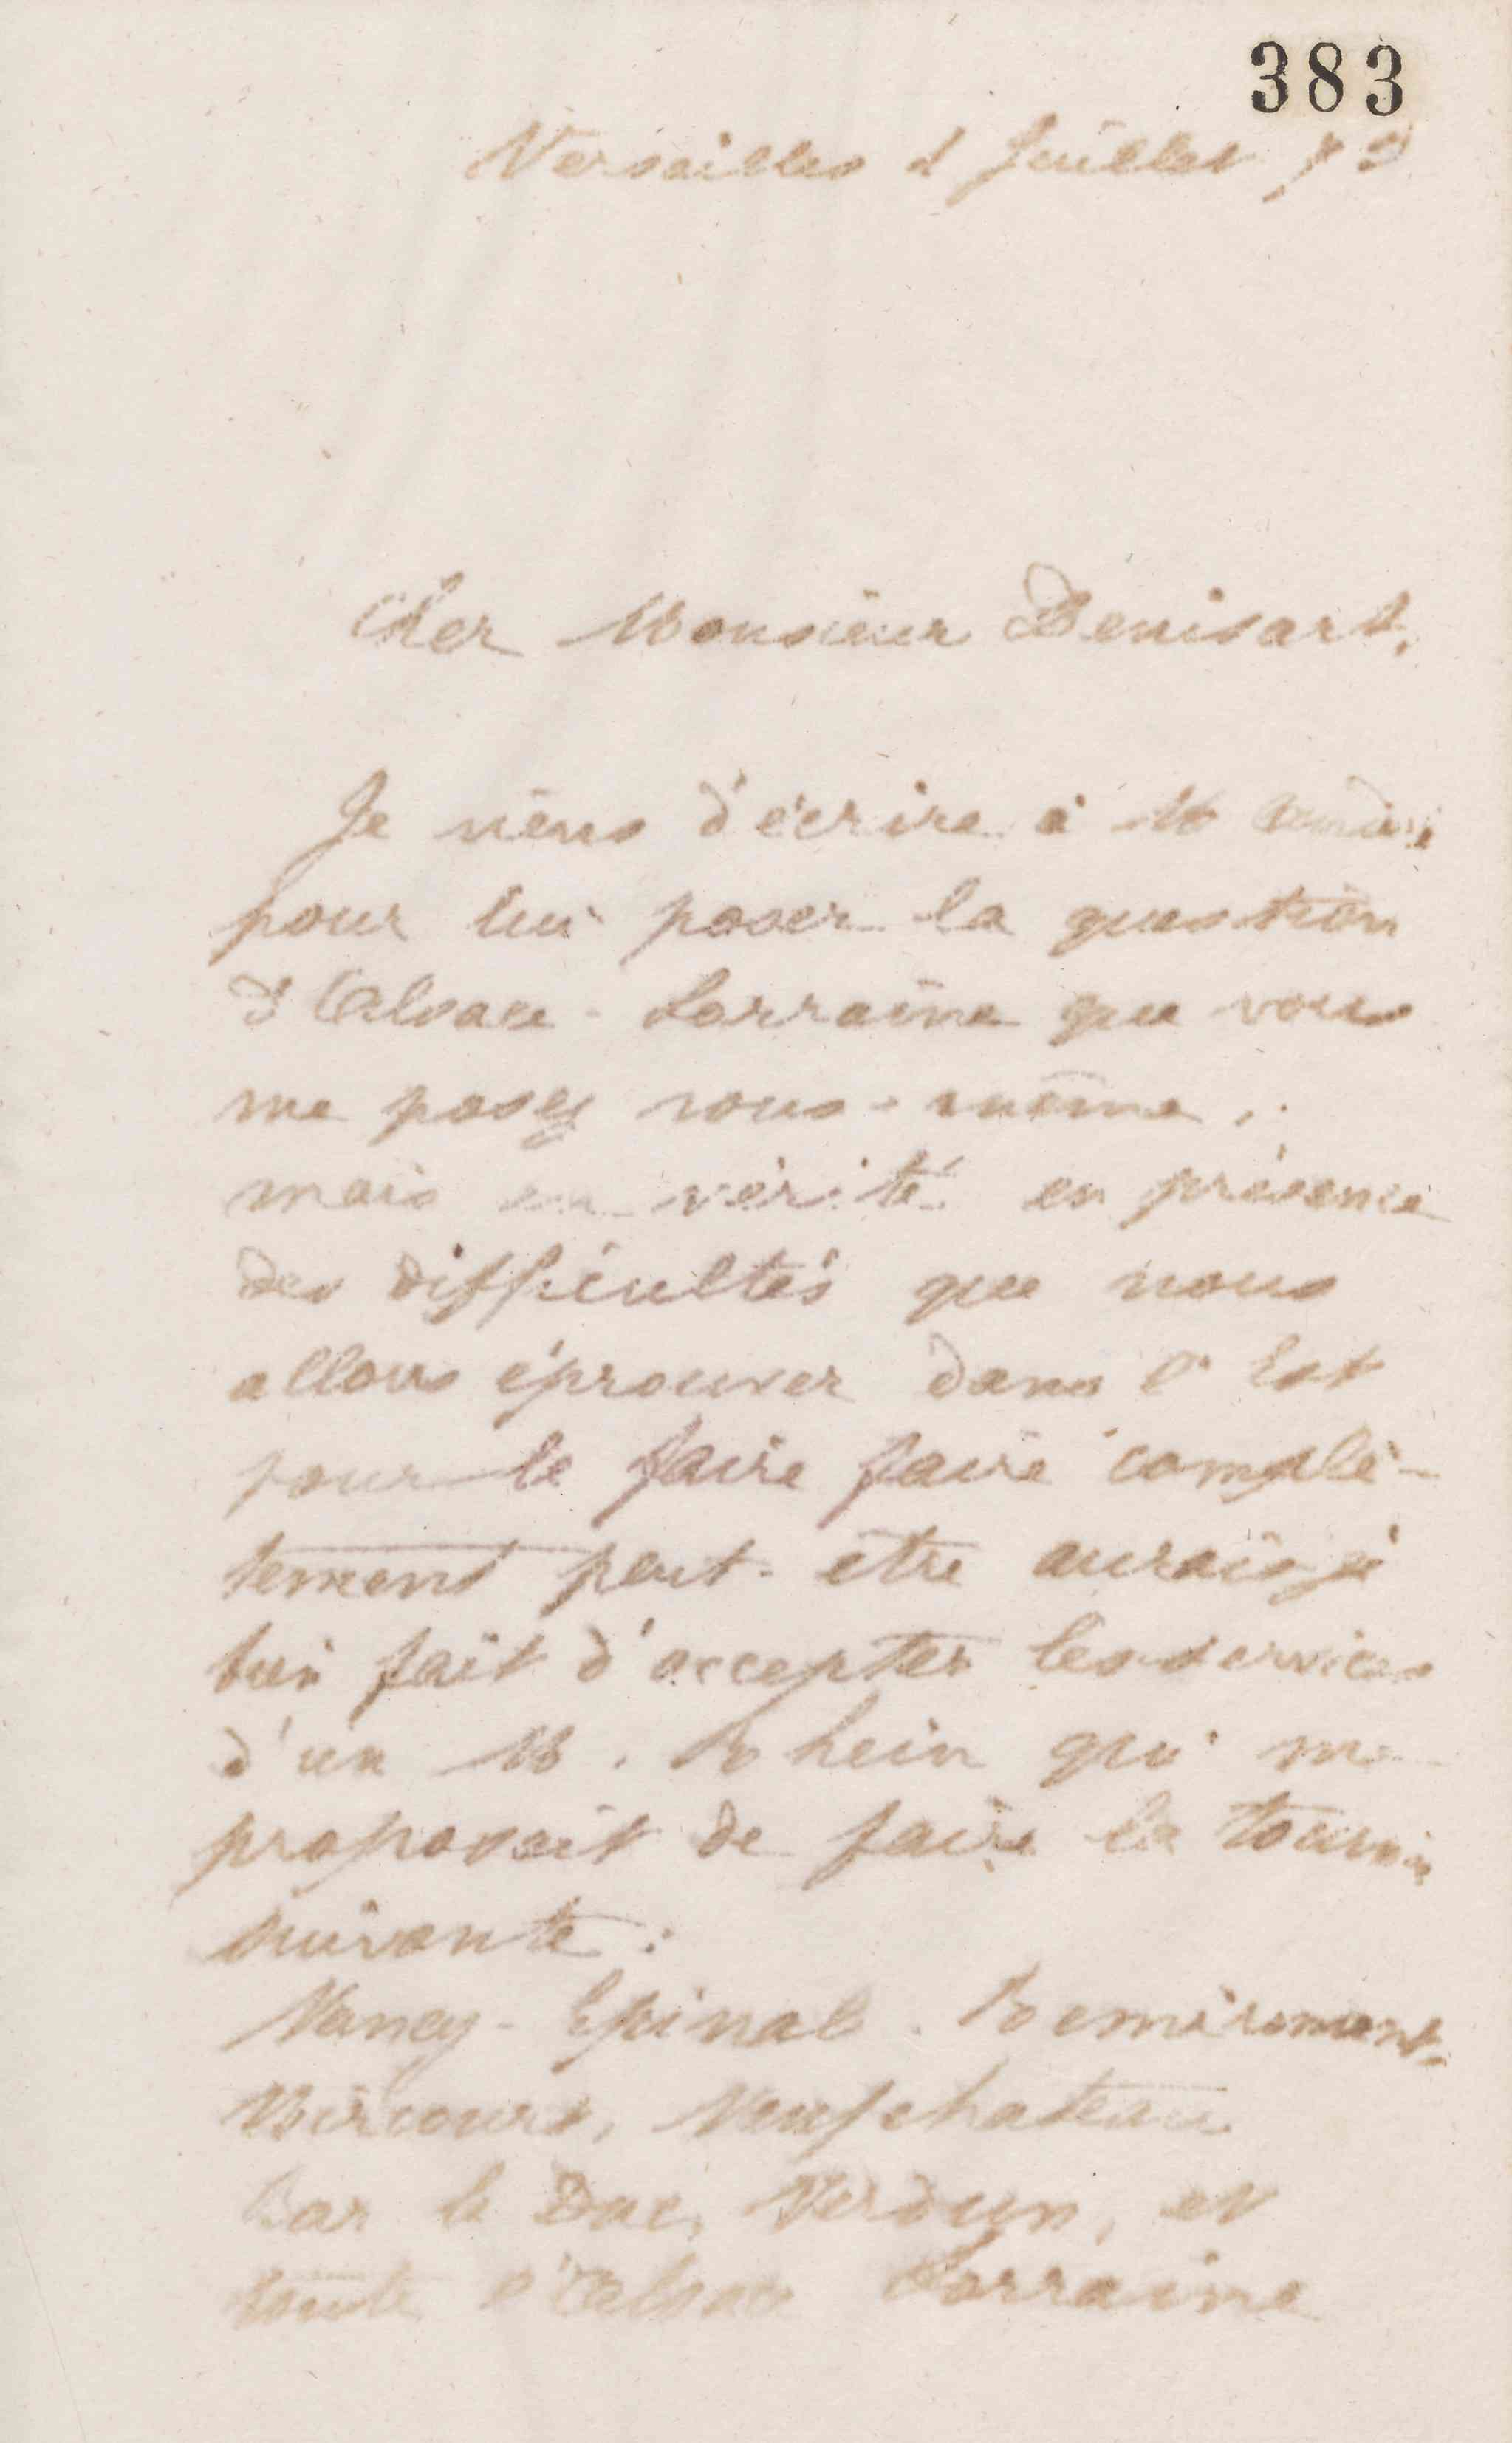 383
Versailles 2 Juillet 79
Cher Monsieur Denisart,
Je viens d'écrire à M
pour lui poser la question
d'Alsace-Lorraine que vous
me posez vous-même,
mais en vérité en présence
des difficultés que nous
allons éprouver dans l'Est
pour le faire faire complè-
tement peut-être aurais-je
bien fait d'accepter les services
d'un M. Rhein qui me
proposait de faire la tournée
suivante :
Nancy - Epinal. Remiremont.
Mirecourt, Neufchateau
Bar le Duc, Verdun, et
toute l'Alsace Lorraine